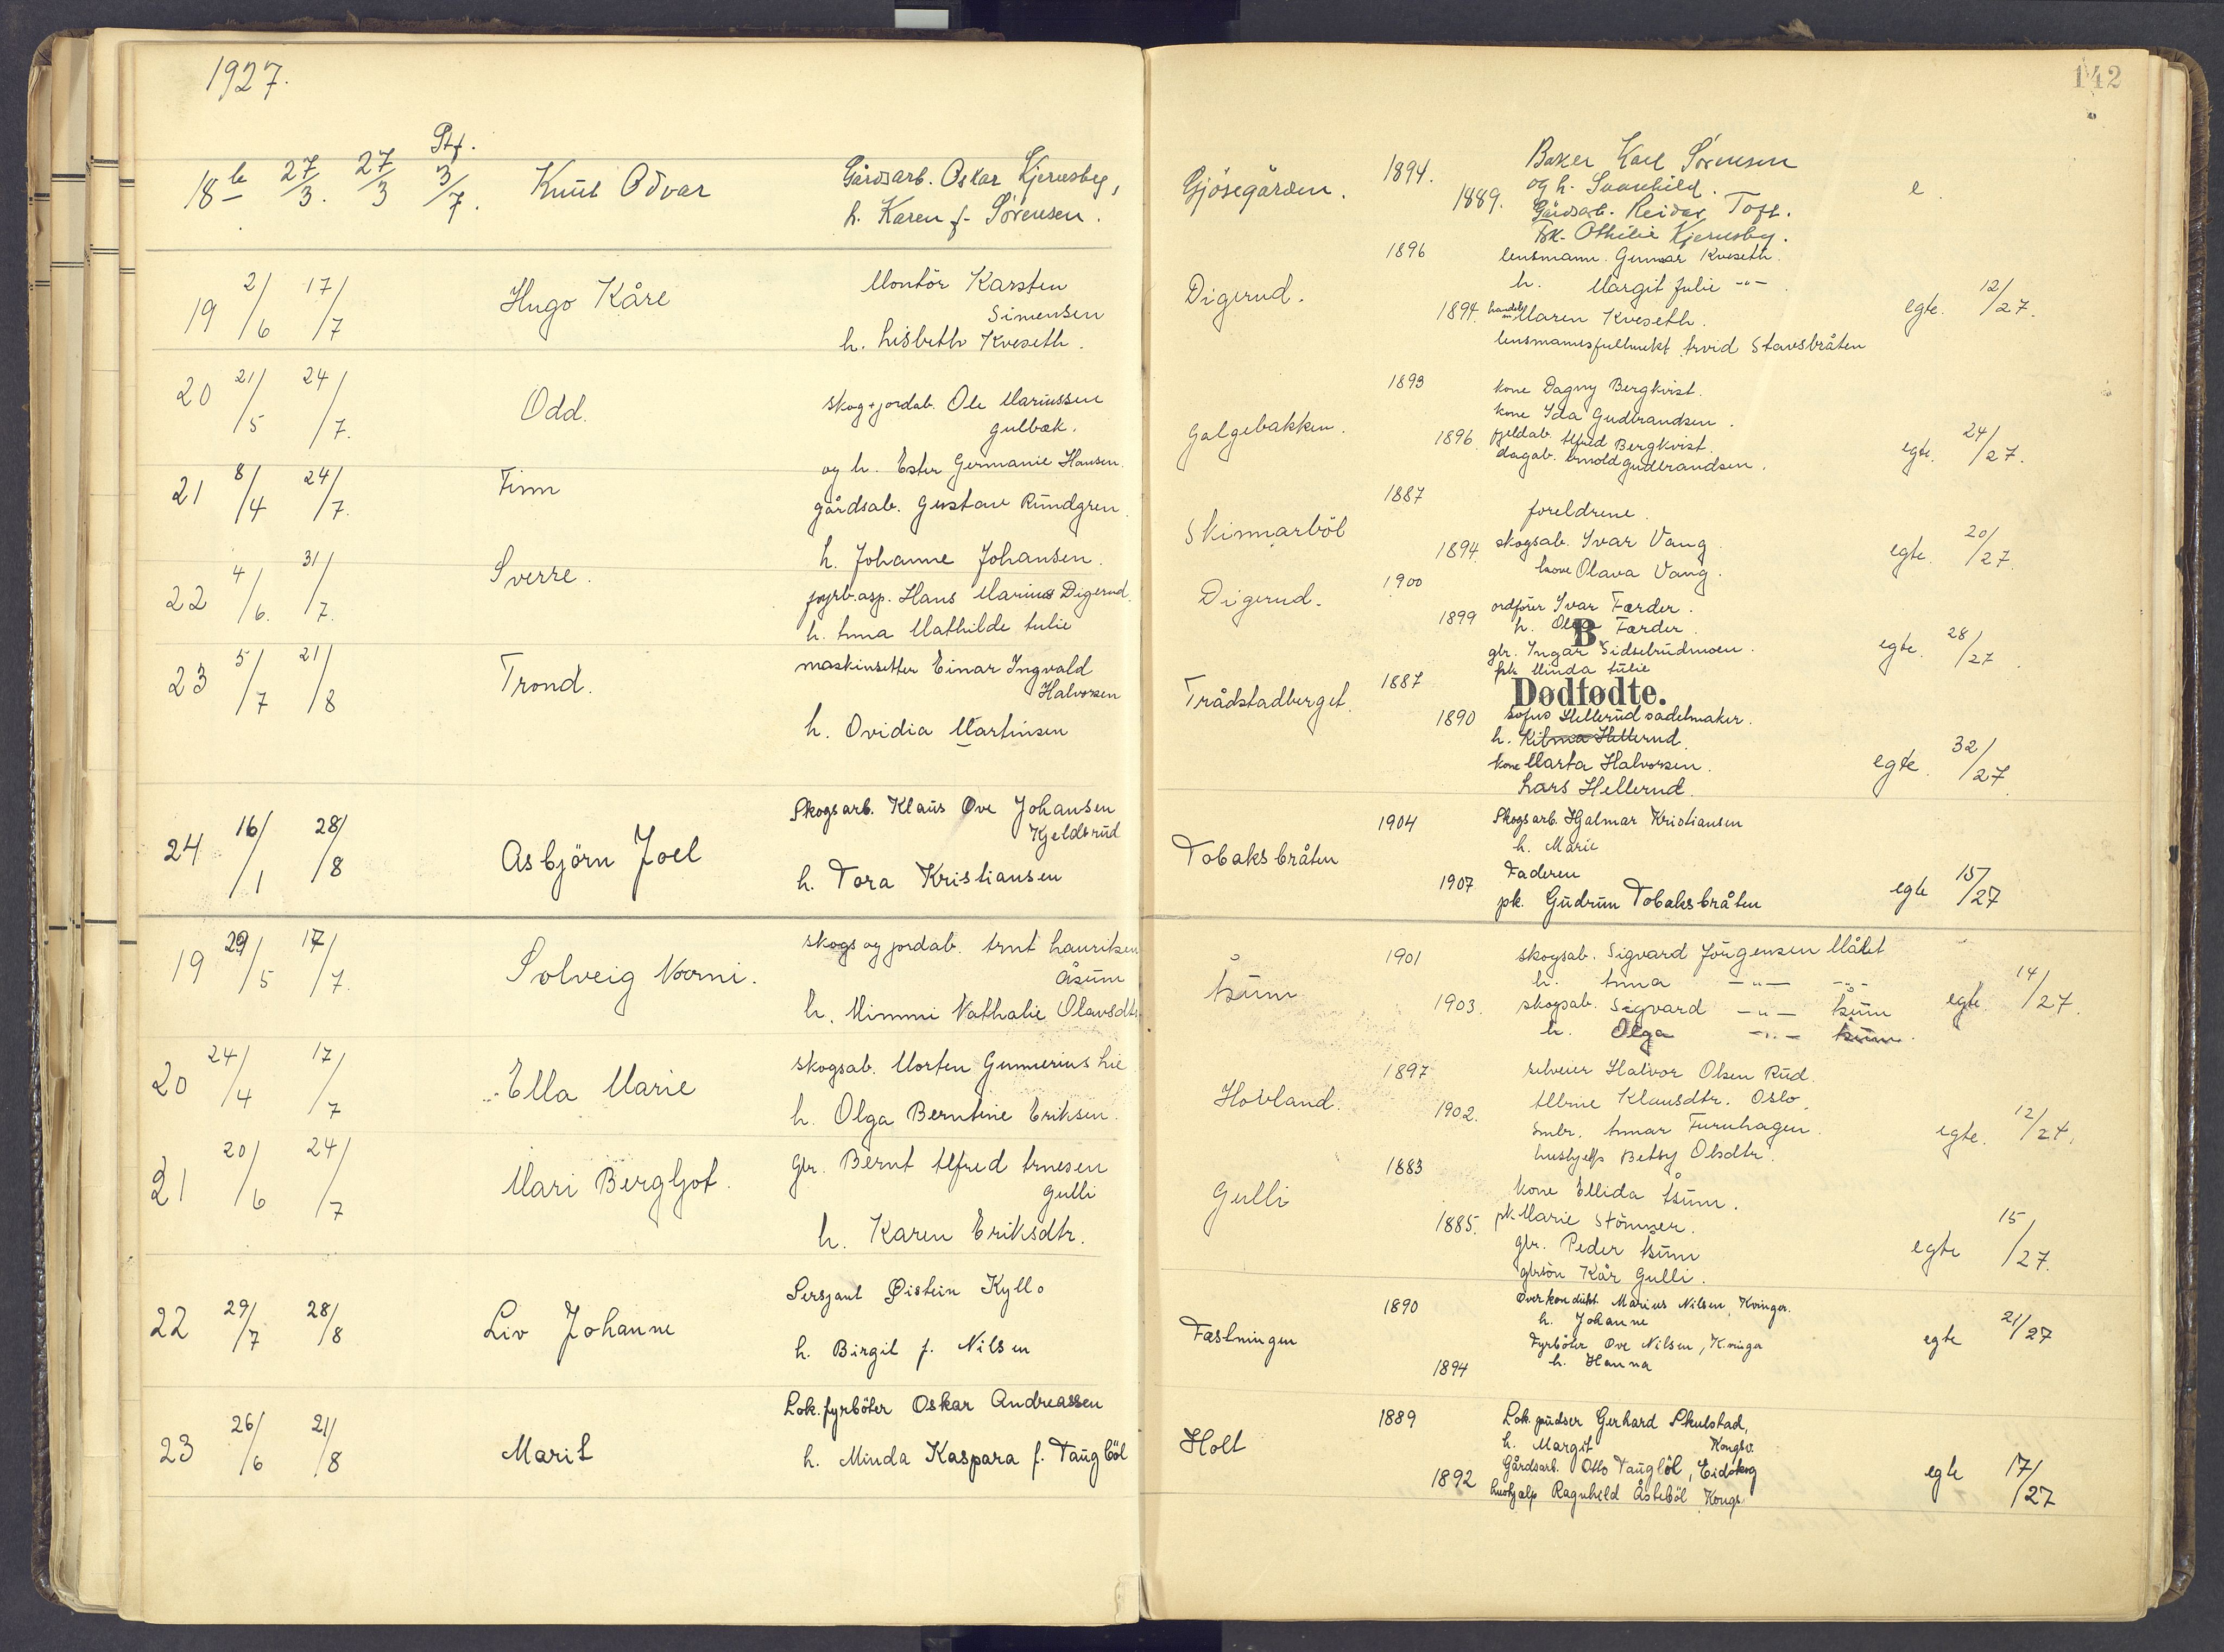 1927.
142
Stf.
18 b 27/3. 27/3 3/7. Knut Odvar Gårdsarb. Oskar Kjernsby,
h. Karen f. Sörensen.
Gjösegården. 1894. Baker Karl Sörensen
og h. Svanhild. e
1889. Gårdsarb. Reidar Toft.
Pk. Othilie Kjernsby.
19 2/6 17/7 Hugo Kåre Montör Karsten
Simensen
h. Lisbeth Kveseth.
Digerud. 1896 lensmann. Gunnar Kveseth.
h. Margit Julie -"-
1894. Maren Kveseth. egte. 12/27.
lensmannsfullmekt Arvid Stavsbråten
20 21/5 24/7. Odd. skog+jordab. Ole Mariussen
Gulbæk.
og h. Ester Germanie Hansen.
Galgebakken. 1893 kone Dagny Bergkvist.
kone Ida Gudbrandsen.
1896. fjeldab. Alfred Bergkvist. egte. 24/27.
dagab. Arnold Gudbrandsen.
21 8/4 24/7. Finn gårdsab. Gustav Rundgren.
h. Johanne Johansen.
Skinnarböl 1887 foreldrene.
1894. skogsab. Ivar Vang. egte. 20/27.
kone Olava Vang.
22 4/6. 31/7. Sverre. fyrb.asp. Hans Marius Digerud.
h. Anna Mathilde Aulie
Digerud. 1900 ordfører Ivar Færder.
1899 h. Olga Færder.
B
gbr. Ingar Sidselrudmoen. egte. 28/27.
pk. Minda Aulie
Dødfødte.
23 5/7 21/8 Trond. maskinsetter Einar Ingvald
Halvorsen
h. Ovidia Martinsen
Trådstadberget. 1887
1890 Sofus Hellerud sadelmaker.
h. Hellerud.
kone Marta Halvorsen. egte. 32/27.
Lars Hellerud.
24 16/1 28/8 Asbjörn Joel Skogsarb. Klaus Ove Johansen
Kjeldsrud
h. Tora Kristiansen
Tobaksbråten 1904 Skogsarb. Hjalmar Kristiansen
h. Marie
1907 Faderen egte 15/27
pk. Gudrun Tobaksbråten
19 29/5 17/7. Solveig Noomi. skogs og jordab. Arnt Lauritsen
Åsum
h. Mimmi Nathalie Olavsdtr.
Åsum 1901 skogsab. Sigvard Jörgensen Måket
h. Anna -"- -"-
1903. skogsab. Sigvard -"- Åsum egte 14/27.
h. Olga -"- Åsum.
20 24/4 17/7 Ella Marie skogsab. Morten Gunnerius Lie
h. Olga Berntine Eriksen.
Hovland. 1897 selveier Halvor Olsen Rud.
1902. Klausdtr. Oslo.
smbr. Furuhagen. egte. 12/27.
hushjelp Betsy Olsdtr.
21 20/6 24/7 Mari Bergljot. Gbr. Bernt Alfred Arnesen
Gulli
h. Karen Eriksdtr.
Gulli 1883 kone Ellida Åsum.
1885. pk. Marie Stömner.
gbr. Peder Åsum egte 15/27.
gbrsön Kår Gulli.
22 29/7 28/8 Liv Johanne Sersjant Øistein Kyllo
h. Birgit f. Nilsen
Fæstningen 1890 Overkondukt. Marius Nilsen, Kvinger.
h. Johanne
Fyrböter Ove Nilsen, Kvinger egte 21/27
1894 h. Hanna
23 26/6 21/8 Marit Lok.fyrböter Oskar Andreassen
h. Minda Kaspara f. Taugböl
Holt 1889 Lok.pudser Gerhard Skulstad,
h. Margit Kongsv.
Gårdsarb. Otto Taugböl, Eidskog egte 17/27
1892 hushjælp Ragnhild Åsteböl Kongs